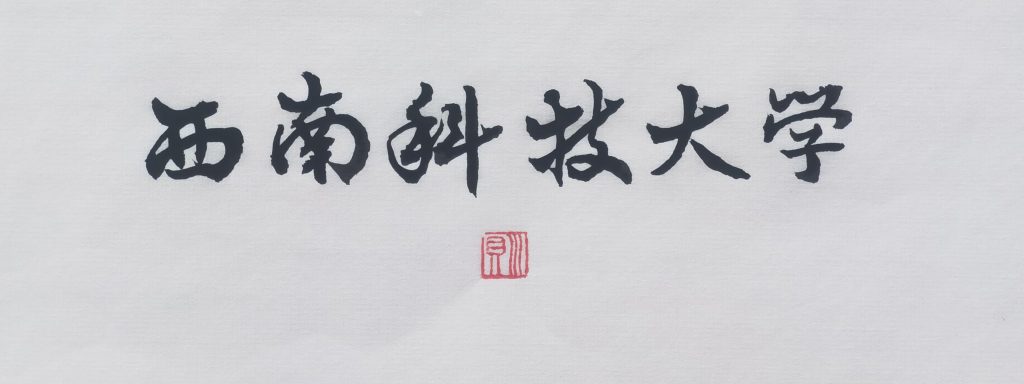 西南科技大学